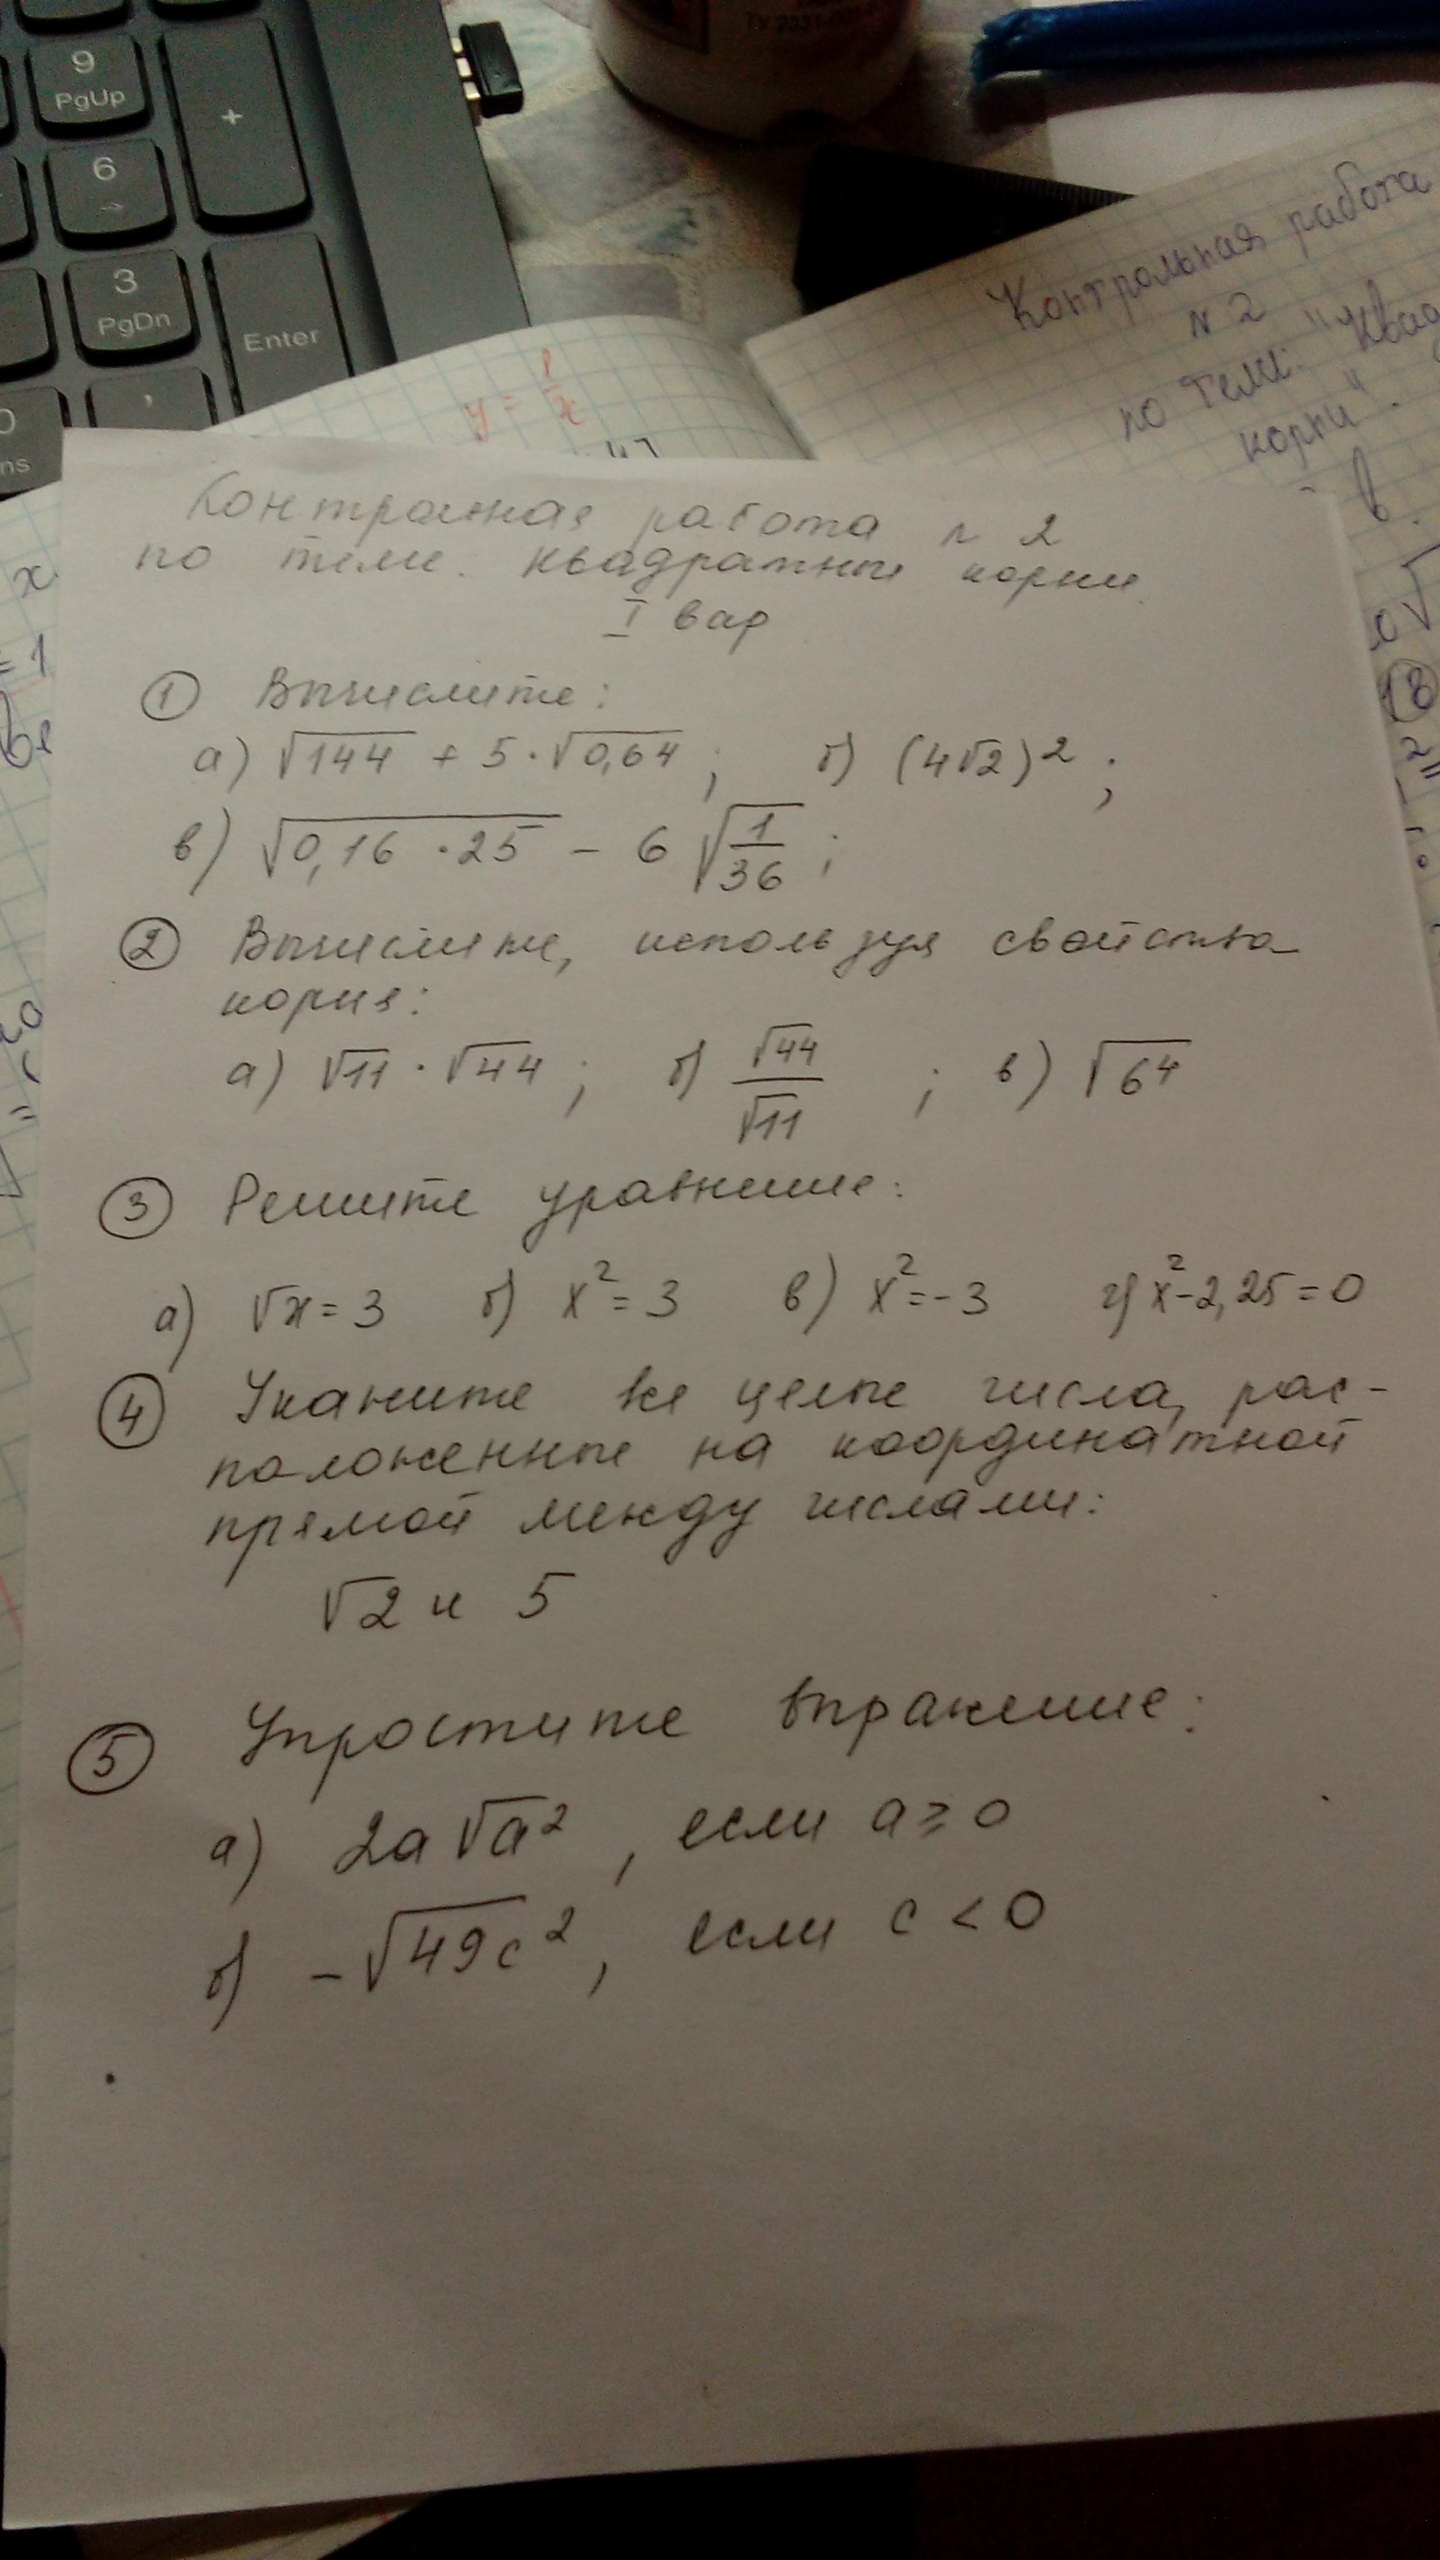 9
PgUp
+
6
→
3
PgDn
Enter
ТУ 2331-
y = 1/x
Контрольная работа
N 2
по теме: "Квад
корни".
Контрольная работа n 2
по теме. квадратные корни
I вар
① Вычислите:
а) √144 + 5·√0,64 ; б) (4√2)² ;
в) √(0,16 · 25) − 6 √(1/36) ;
② Вычислите, используя свойства
корня:
а) √11 · √44 ; б) √44/√11 ; в) √64
③ Решите уравнение:
а) √x = 3 б) x² = 3 в) x² = −3 г) x² − 2,25 = 0
④ Укажите все целые числа, рас-
положенные на координатной
прямой между числами:
√2 и 5
⑤ Упростите выражение:
а) 2a √a² , если a ≥ 0
б) −√49c² , если c < 0